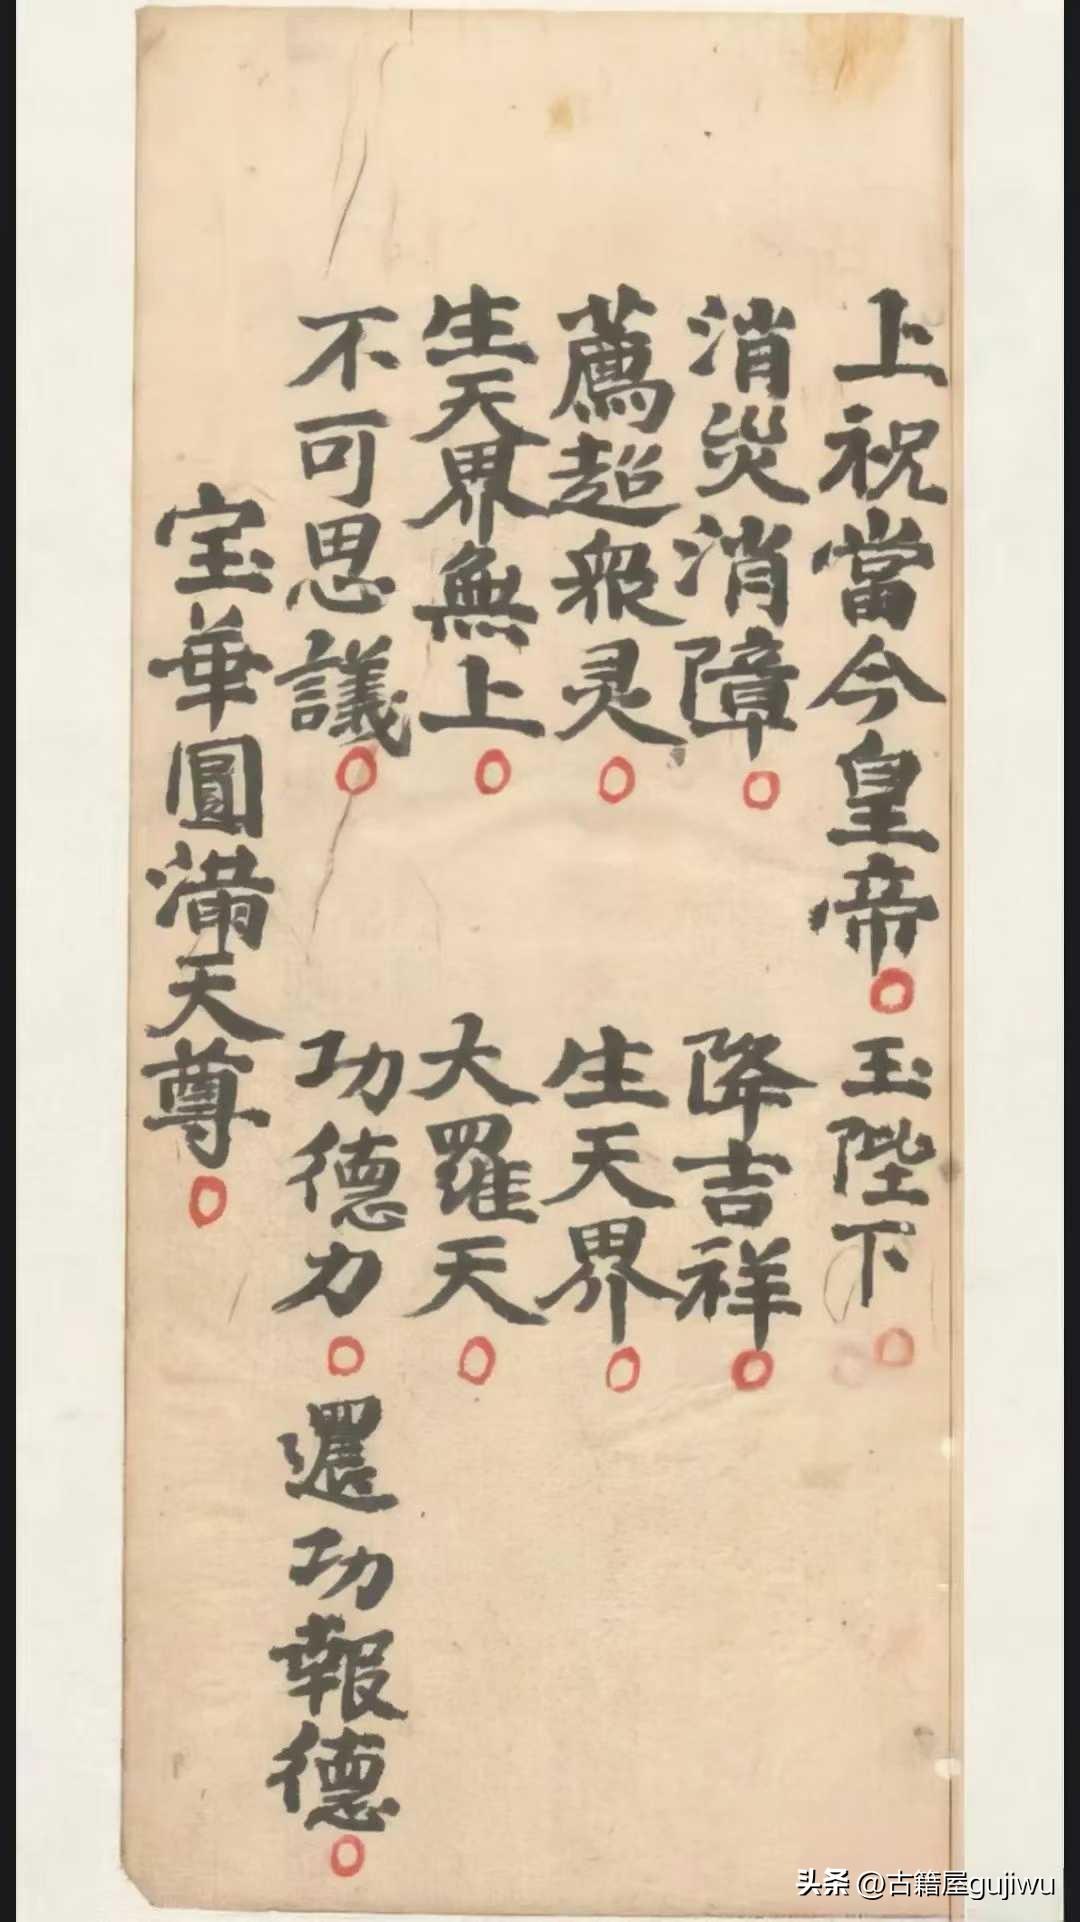 上祝當今皇帝○玉陛下○
消災消障○降吉祥○
薦超衆灵○生天界○
生天界無上○大羅天○
不可思議○功德力○還功報德○
宝華圓滿天尊○
头条 @古籍屋gujiwu